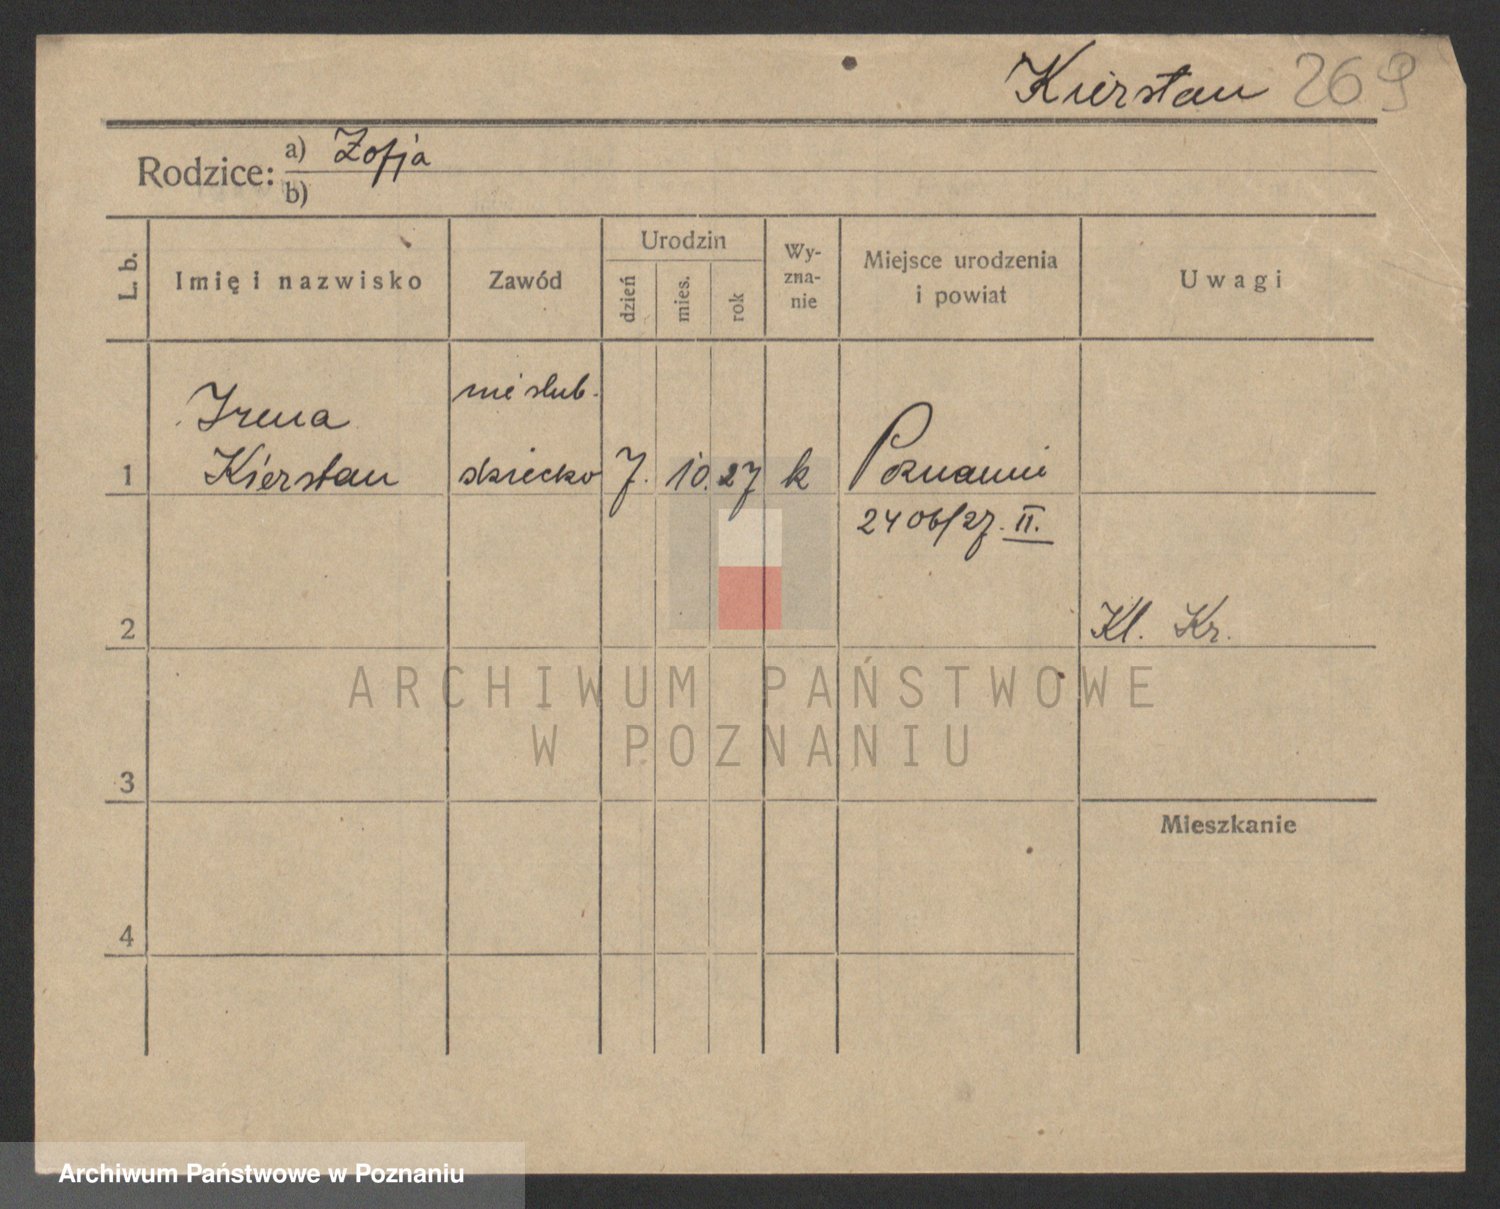 Kierstan 269
Rodzice: a) Zofja
b)
L. b.
Imię i nazwisko
Zawód
Urodzin
dzień
mies.
rok
Wy-
zna-
nie
Miejsce urodzenia
i powiat
Uwagi
nieślub.
Irena
1 Kierstan dziecko 7. 10. 27 k Poznaniu
2406/27. II.
2 Kl. Kr.
ARCHIWUM PAŃSTWOWE
W POZNANIU
3
Mieszkanie
4
Archiwum Państwowe w Poznaniu